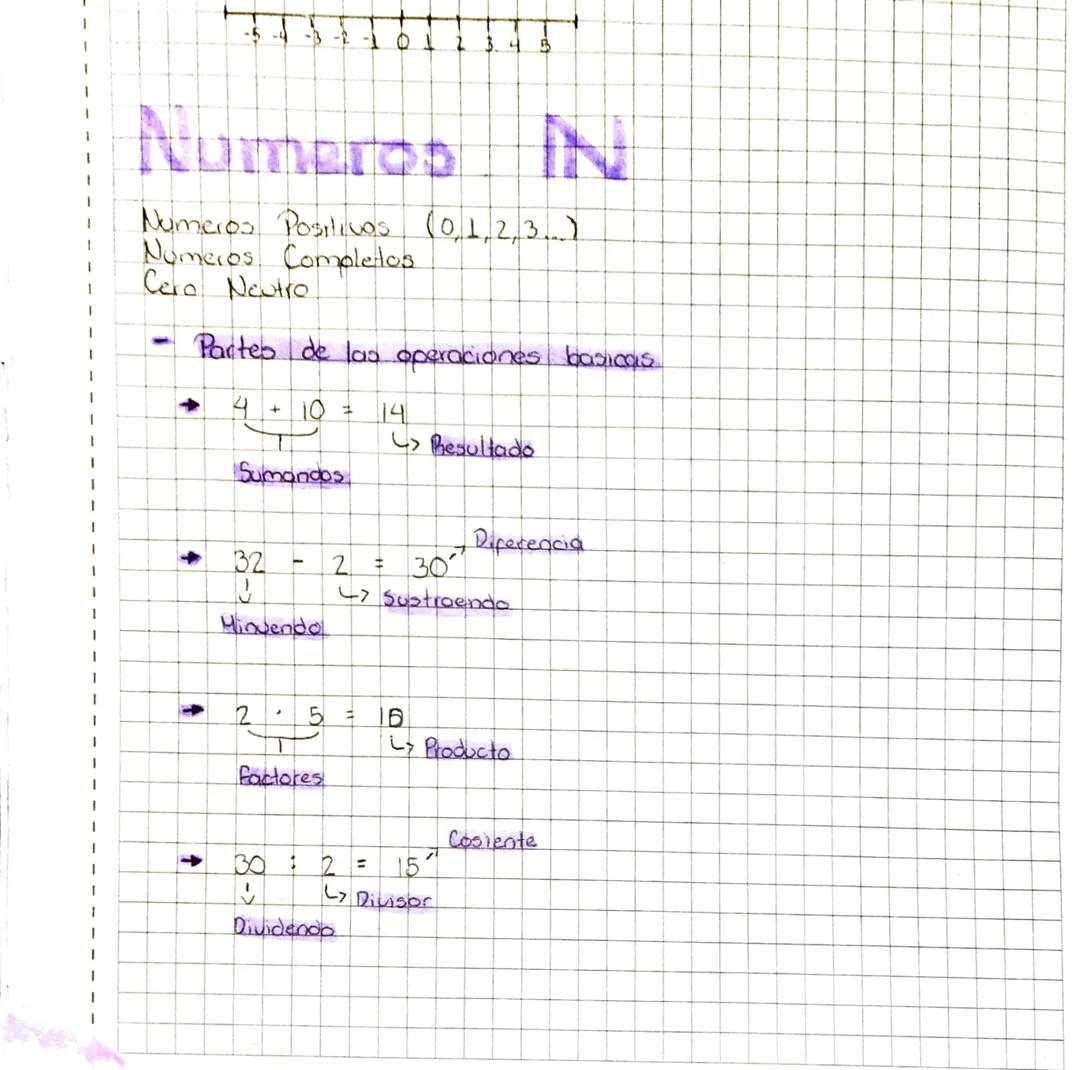 -5 -4 -3 -2 -1 0 1 2 3 4 5
Numeros IN
Numeros Positivos (0,1,2,3...)
Numeros Completos
Cero Neutro
- Partes de las operaciones basicas
→ 4 + 10 = 14
↳ Resultado
Sumandos
Diferencia
→ 32 - 2 = 30
↳ Sustraendo
Minuendo
→ 2 · 5 = 10
↳ Producto
Factores
Cosiente
→ 30 : 2 = 15
↳ Divisor
Dividendo